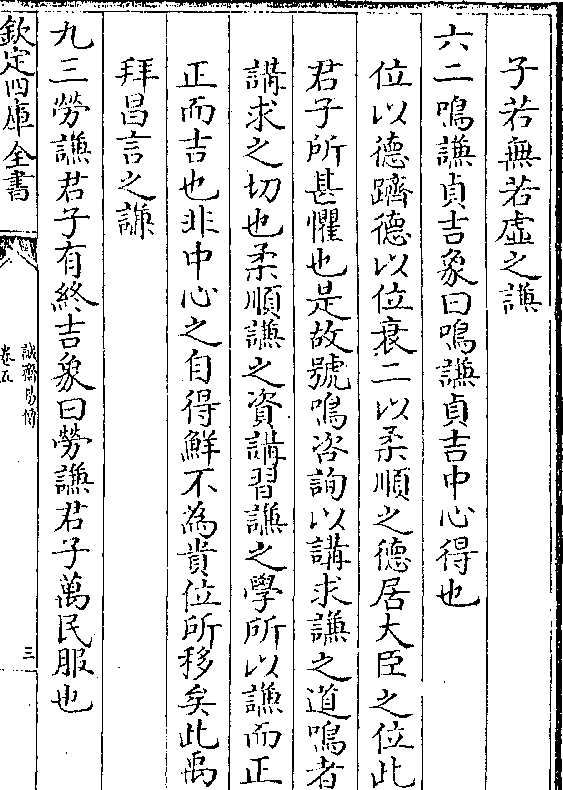 子若無若虛之謙
六二鳴謙貞吉象曰鳴謙貞吉中心得也
位以德躋德以位衰二以柔順之德居大臣之位此
君子所甚懼也是故號鳴咨詢以講求謙之道鳴者
講求之切也柔順謙之資講習謙之學所以謙而正
正而吉也非中心之自得鮮不為貴位所移矣此禹
拜昌言之謙
九三勞謙君子有終吉象曰勞謙君子萬民服也
欽定四庫全書
誠齋易傳
卷五
三